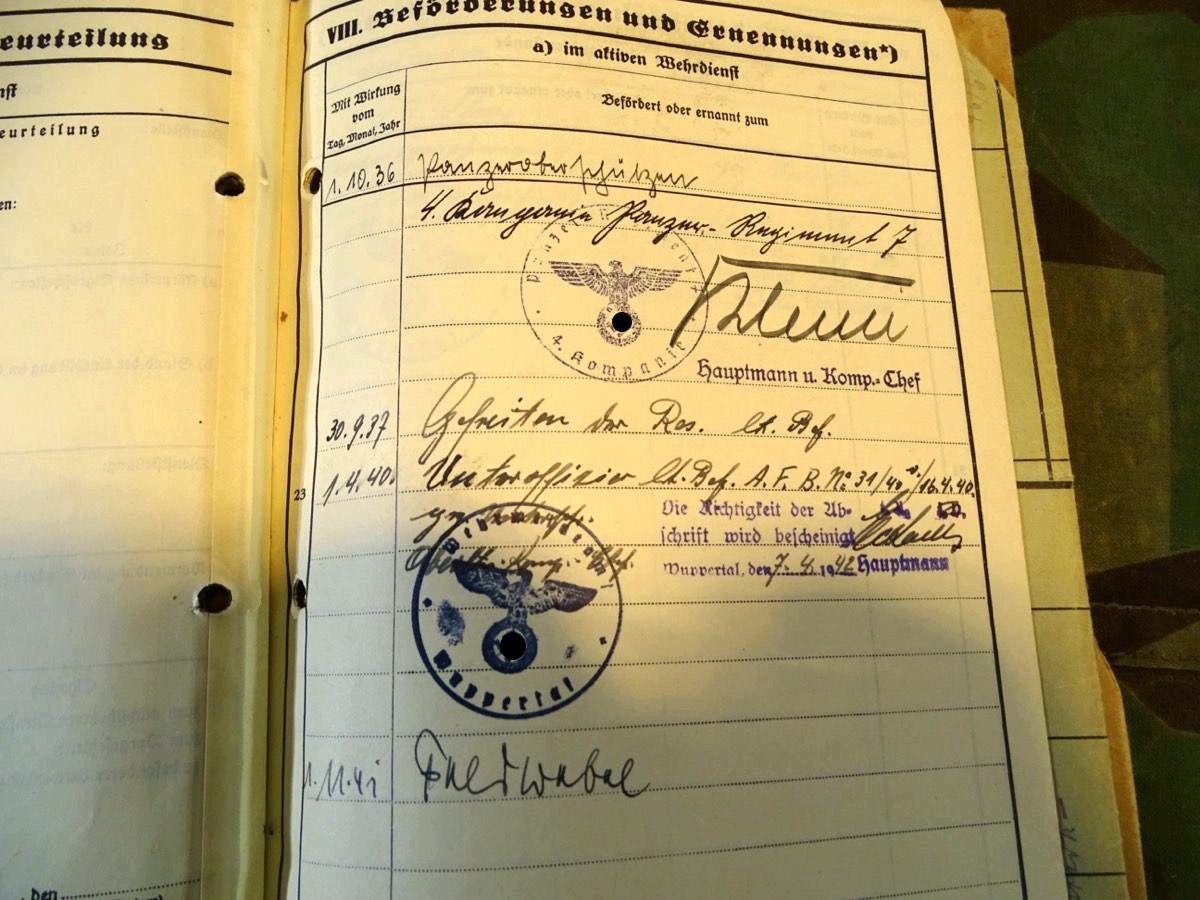 eurteilung
eurteilung
en:
den
VIII. Beförderungen und Ernennungen*)
a) im aktiven Wehrdienst
Mit Wirkung
vom
Tag, Monat, Jahr
Befördert oder ernannt zum
1.10.36 Panzeroberschützen
4. Kompanie Panzer-Regiment 7
4. Kompanie
Hauptmann u. Komp.-Chef
30.9.37 Gefreiten der Res. lt. Bef.
23
1.4.40. Unteroffizier lt. Bef. A. F. B. No 31/40 v. 16.4.40.
Die Richtigkeit der Ab-
schrift wird bescheinigt
Wuppertal, den 7.4.1942 Hauptmann
Wuppertal
1.11.41 Feldwebel